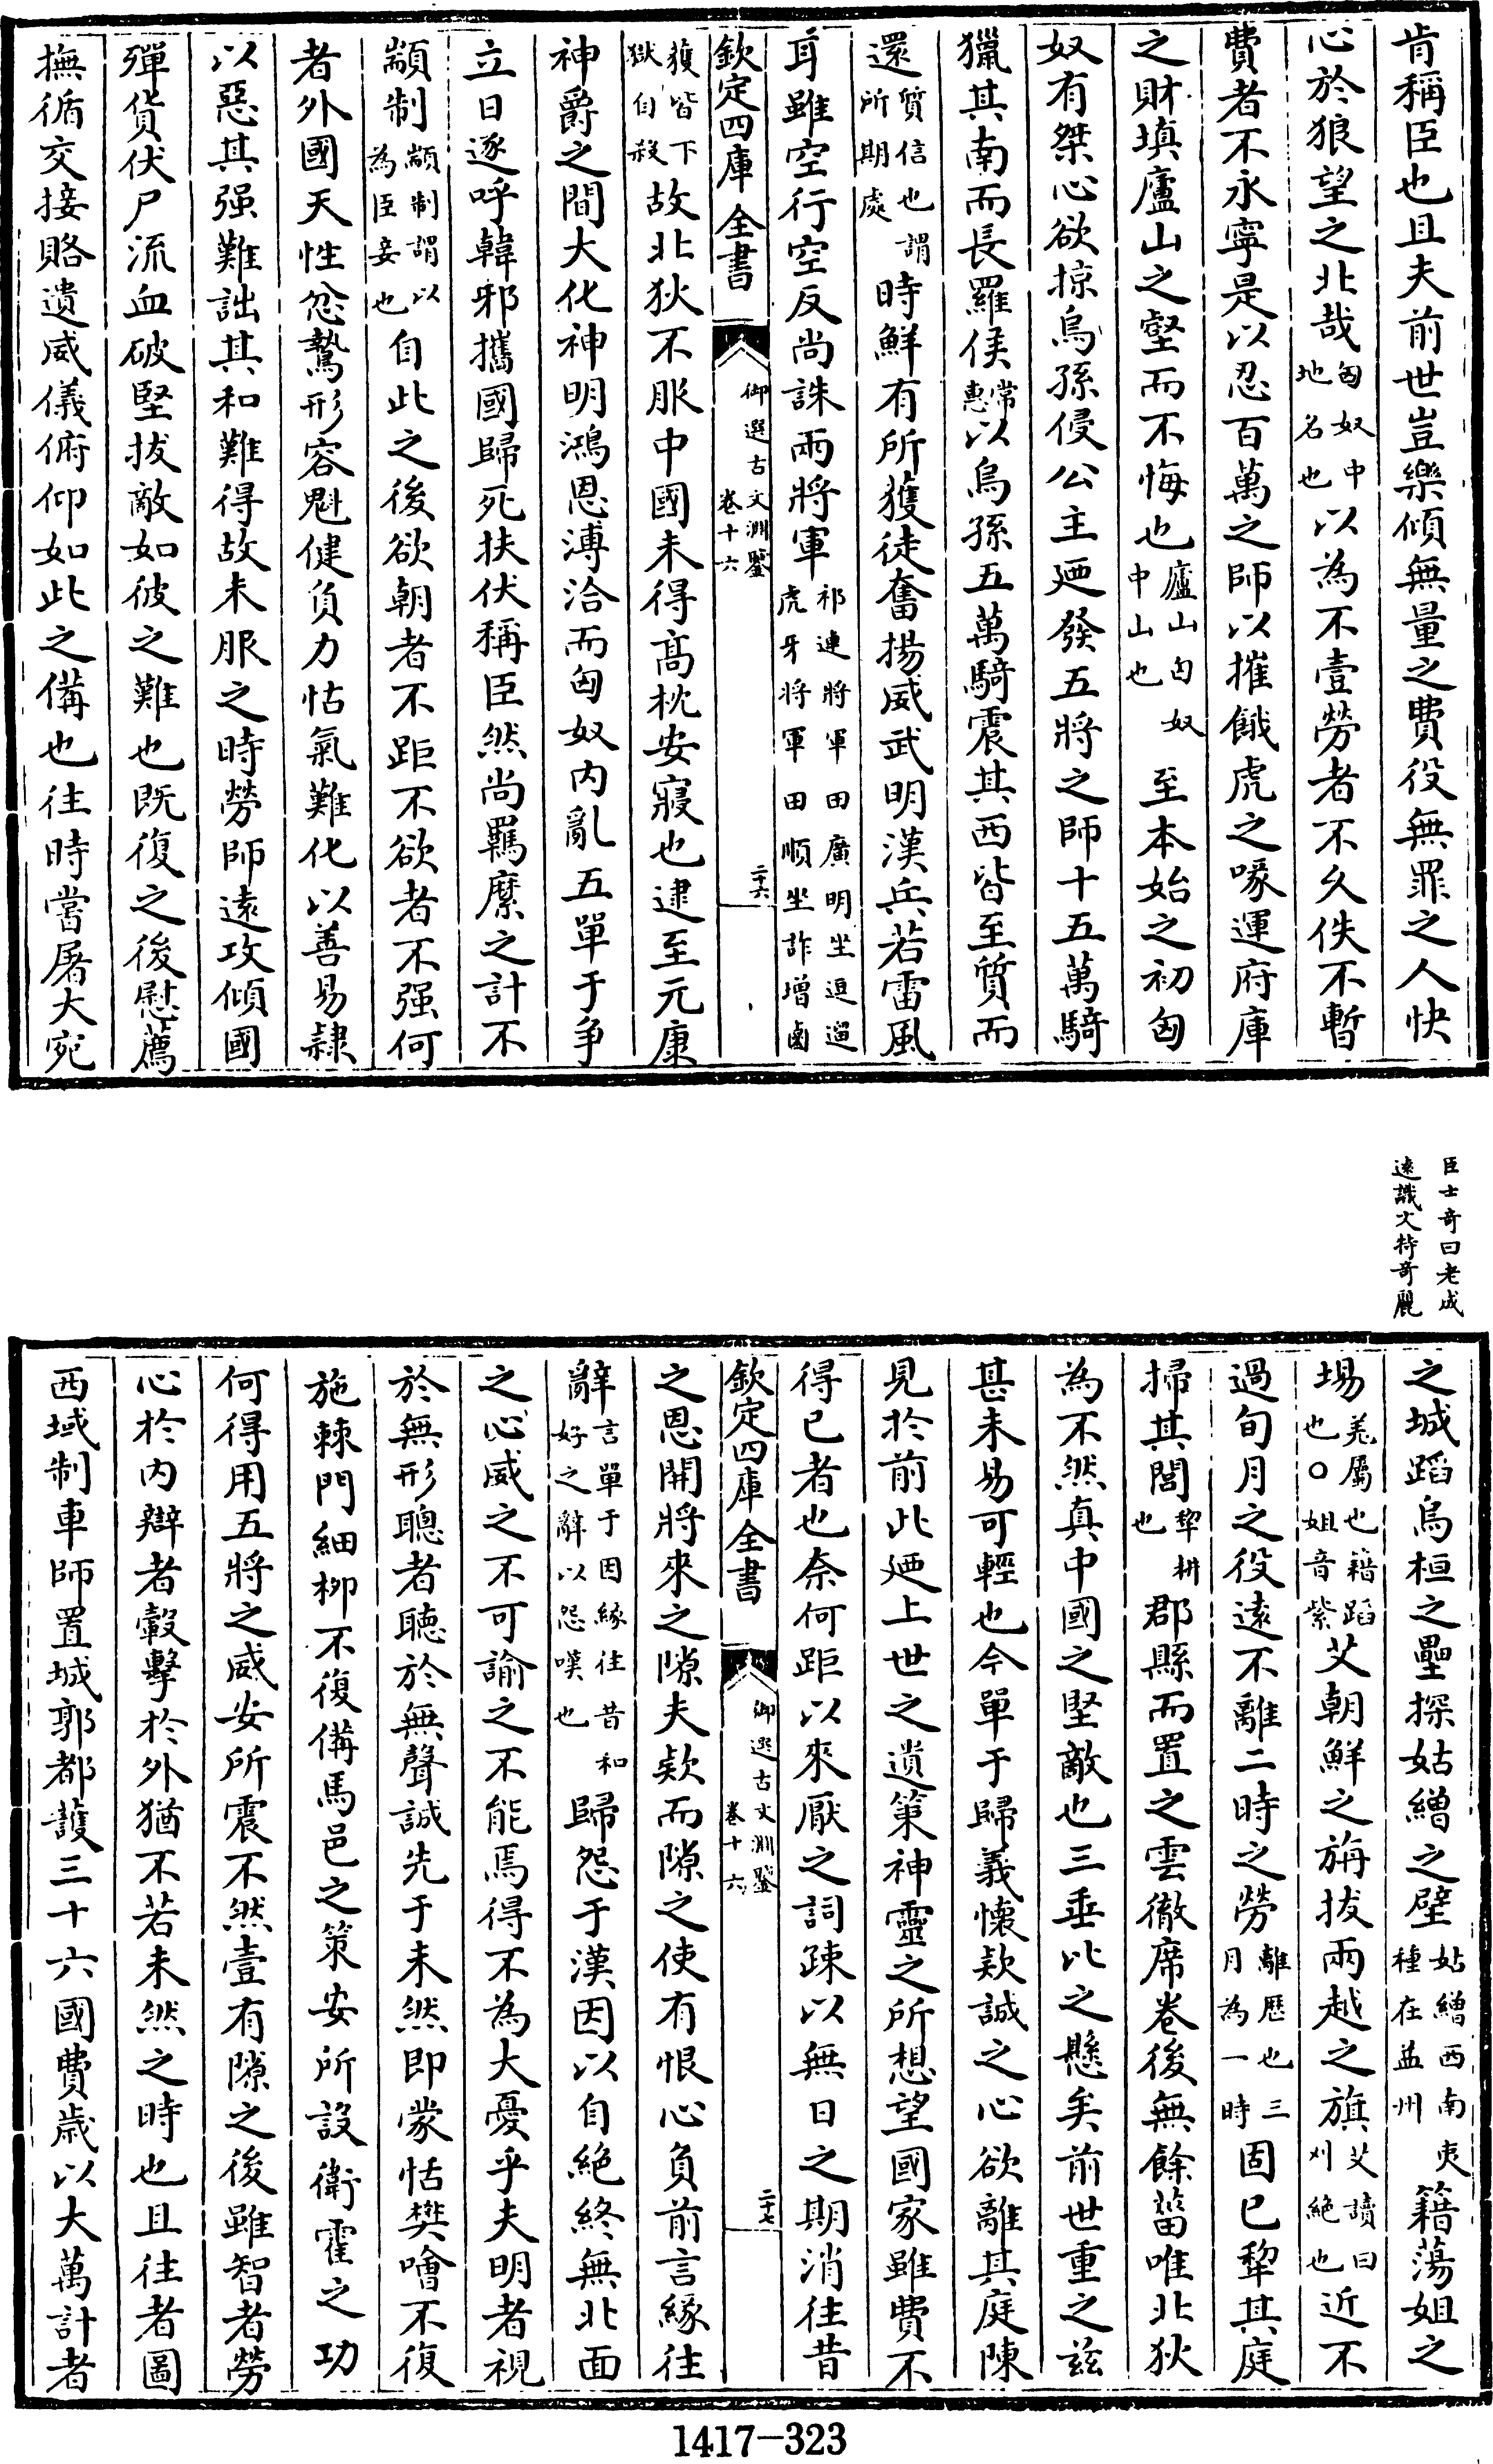 肯稱臣也且夫前世豈樂傾無量之費役無罪之人快
心於狼望之北哉匈奴中地名也以為不壹勞者不久佚不暫
費者不永寧是以忍百萬之師以摧餓虎之喙運府庫
之財填廬山之壑而不悔也廬山匈奴中山也至本始之初匈
奴有桀心欲掠烏孫侵公主廼發五將之師十五萬騎
獵其南而長羅侯常惠以烏孫五萬騎震其西皆至質而
還質信也謂所期處時鮮有所獲徒奮揚威武明漢兵若雷風
耳雖空行空反尚誅兩將軍祁連將軍田廣明坐逗遛虎牙將軍田順坐詐增鹵
欽定四庫全書 御選古文淵鑒卷十六 二十六
獲皆下獄自殺故北狄不服中國未得高枕安寢也逮至元康
神爵之間大化神明鴻恩溥洽而匈奴内亂五單于争
立日逐呼韓邪攜國歸死扶伏稱臣然尚羈縻之計不
顓制顓制謂以為臣妾也自此之後欲朝者不距不欲者不强何
者外國天性忿鷙形容魁健負力怙氣難化以善易隸
以惡其强難詘其和難得故未服之時勞師遠攻傾國
殫貨伏尸流血破堅拔敵如彼之難也既復之後慰薦
撫循交接賂遺威儀俯仰如此之備也往時嘗屠大宛
臣士奇曰老成
遠識文特奇麗
之城蹈烏桓之壘探姑繒之壁姑繒西南夷種在益州籍蕩姐之
場羌屬也籍蹈也○姐音紫艾朝鮮之旃拔兩越之旗艾讀曰刈絕也近不
過旬月之役遠不離二時之勞離歷也三月為一時固已犂其庭
掃其閭犂耕也郡縣而置之雲徹席卷後無餘菑唯北狄
為不然真中國之堅敵也三垂比之懸矣前世重之兹
甚未易可輕也今單于歸義懷欵誠之心欲離其庭陳
見於前此廼上世之遺策神靈之所想望國家雖費不
得已者也奈何距以來厭之詞疎以無日之期消往昔
欽定四庫全書 御選古文淵鑒卷十六 二十七
之恩開將來之隙夫欵而隙之使有恨心負前言緣往
辭言單于因緣往昔和好之辭以怨嘆也歸怨于漢因以自絶終無北面
之心威之不可諭之不能焉得不為大憂乎夫明者視
於無形聰者聽於無聲誠先于未然即蒙恬樊噲不復
施棘門細栁不復備馬邑之策安所設衛霍之功
何得用五將之威安所震不然壹有隙之後雖智者勞
心於内辯者轂擊於外猶不若未然之時也且往者圖
西域制車師置城郭都護三十六國費歲以大萬計者
1417-323